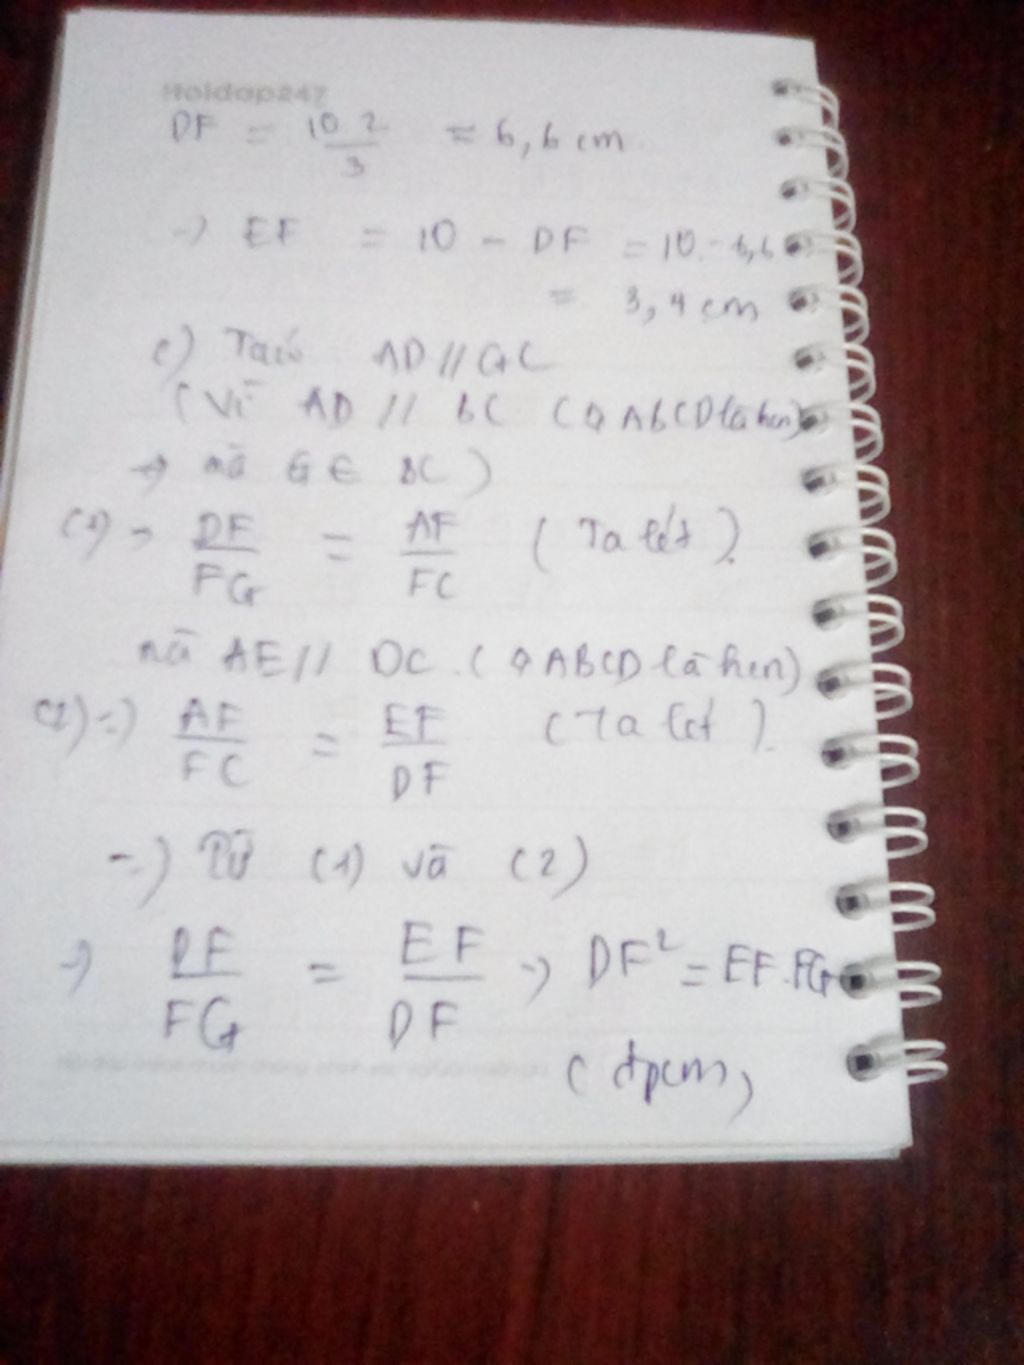 Hoidap247
DF = 10.2/3 = 6,6 cm
-> EF = 10 - DF = 10 - 6,6
= 3,4 cm
c) Ta có AD // GC
(Vì AD // BC (◊ ABCD là hcn)
-> mà G ∈ BC)
(1) -> DF/FG = AF/FC (Ta lét).
mà AE // DC. (◊ ABCD là hcn)
(2) =) AF/FC = EF/DF (Ta lét).
=) Từ (1) và (2)
-> DF/FG = EF/DF -> DF² = EF.FG
(đpcm)